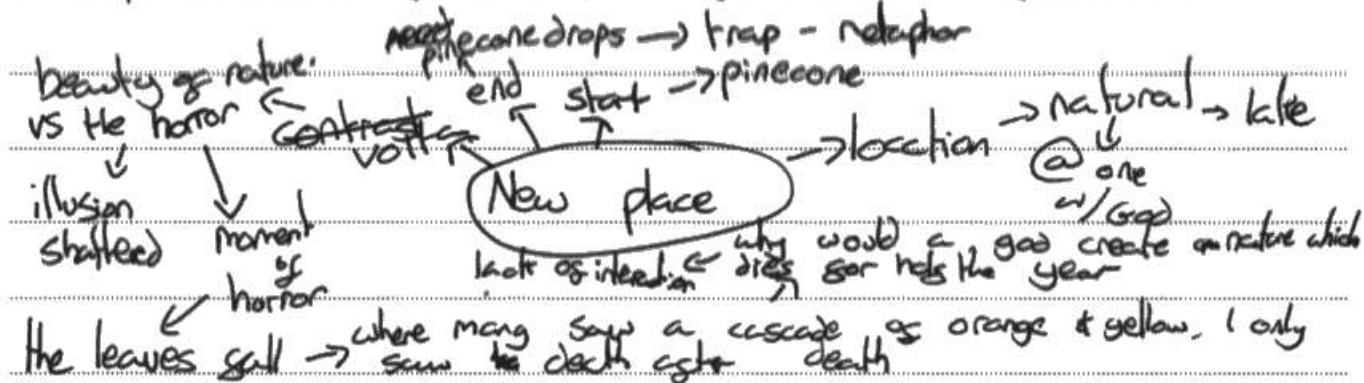 pinecone drops → trap - metaphor
beauty of nature.
vs the horror
end
start → pinecone
volta
→ location → natural → lake
@ one
w/ God
New place
illusion
shattered
moment
of
horror
why would a god create nature which
dies for half the year
lack of
the leaves fall → where many saw a cascade of orange & yellow, I only
saw death after death